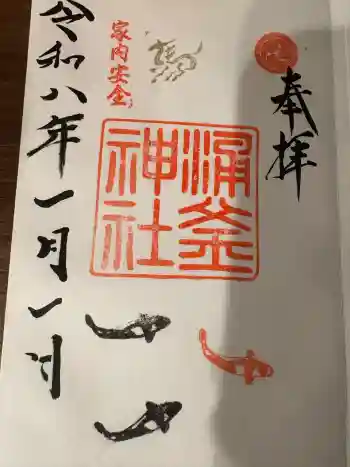 奉拝
涌釜
神社
馬
家内安全
令和八年一月一日